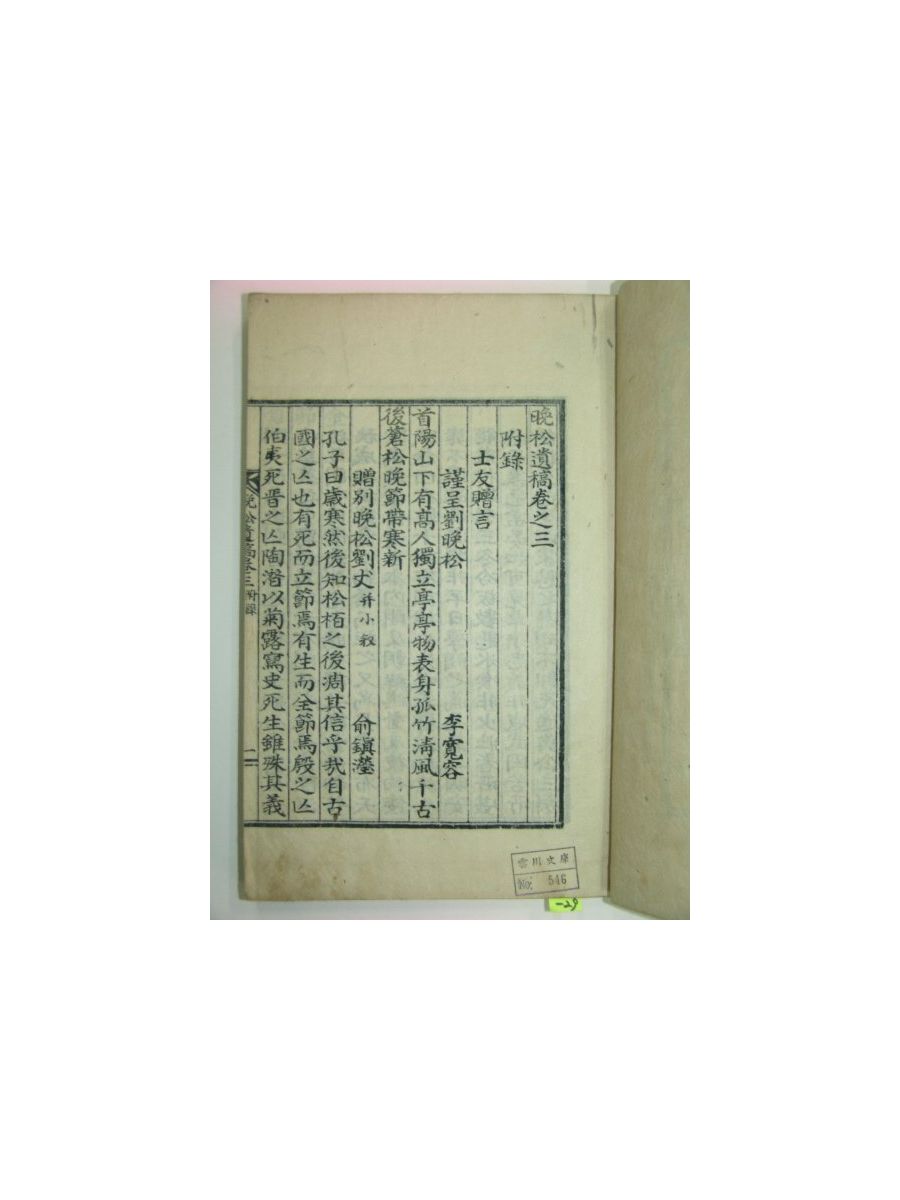 晚松遺稿卷之三
附錄
士友贈言
謹呈劉晚松 李寬容
首陽山下有高人獨立亭亭物表身孤竹淸風千古
後蒼松晚節帶寒新
贈別晚松劉丈 并小敍 俞鎭瀅
孔子曰歲寒然後知松栢之後凋其信乎哉自古
國之亾也有死而立節焉有生而全節焉殷之亾
伯夷死晋之亾陶潛以菊露寫史死生雖殊其義
晚松遺稿卷三附錄 一
雲川文庫
No. 546
-29